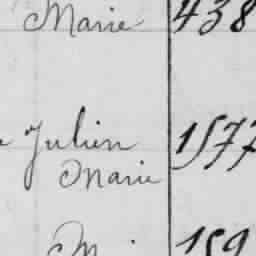 Marie 438
Julien 1577
Marie
159